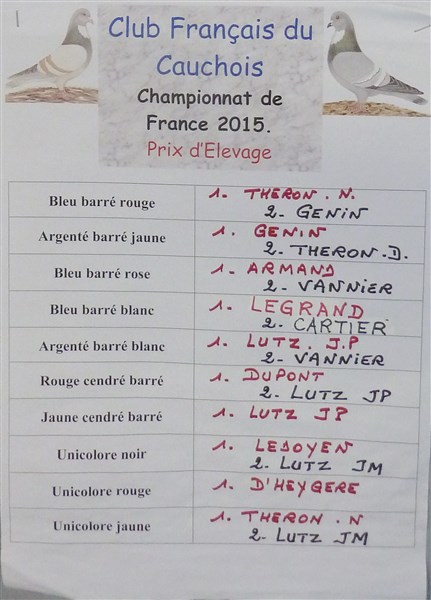 Club Français du
Cauchois
Championnat de
France 2015.
Prix d'Elevage
Bleu barré rouge 1. THERON . N.
2- GENIN
Argenté barré jaune 1. GENIN
2- THERON.D.
Bleu barré rose 1- ARMAND
2- VANNIER
Bleu barré blanc 1- LEGRAND
2- CARTIER
Argenté barré blanc 1- LUTZ. J.P
2- VANNIER
Rouge cendré barré 1- DUPONT
2- LUTZ JP
Jaune cendré barré 1. LUTZ JP
Unicolore noir 1. LEDOYEN
2- LUTZ JM
Unicolore rouge 1. D'HEYGERE
Unicolore jaune 1. THERON . N
2- LUTZ JM